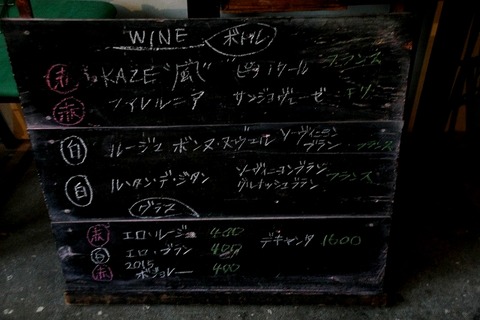 WINE ボトル
赤 KAZE "風" フランス
赤 サンジョヴェーゼ チリ
白 ルージュ ボンヌ・ヌヴェル ソーヴィニヨンブラン フランス
白 ル・タン・デ・ジタン ソーヴィニョンブラン グルナッシュブラン フランス
グラス
赤 エロ・ルージュ 400 デキャンタ 1600
白 エロ・ブラン 400
赤 2015 ボジョレー 400